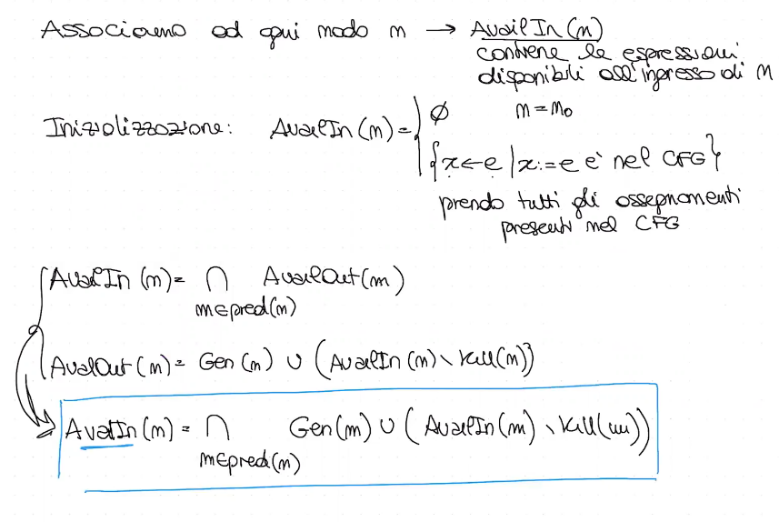 Associamo ad ogni nodo n → AvailIn(n)
contiene le espressioni
disponibili all'ingresso di n
Inizializzazione: AvailIn(n) = { ∅ n = n₀
{x ← e | x := e è nel CFG}
prendo tutti gli assegnamenti
presenti nel CFG
AvailIn(n) = ∩ AvailOut(m)
m∈pred(n)
AvailOut(m) = Gen(m) ∪ (AvailIn(m) \ Kill(m))
AvailIn(n) = ∩ Gen(m) ∪ (AvailIn(m) \ Kill(m))
m∈pred(n)